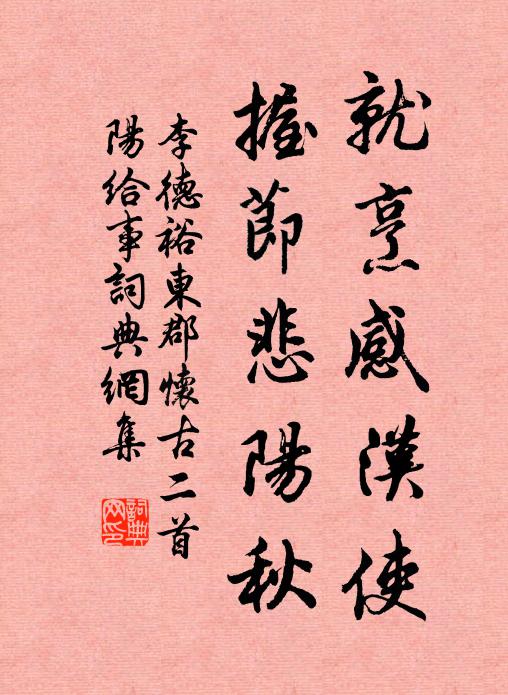 就烹感漢使
握節悲陽秋
李德裕東郡懷古二首
陽給事詞典網集
詞典网印